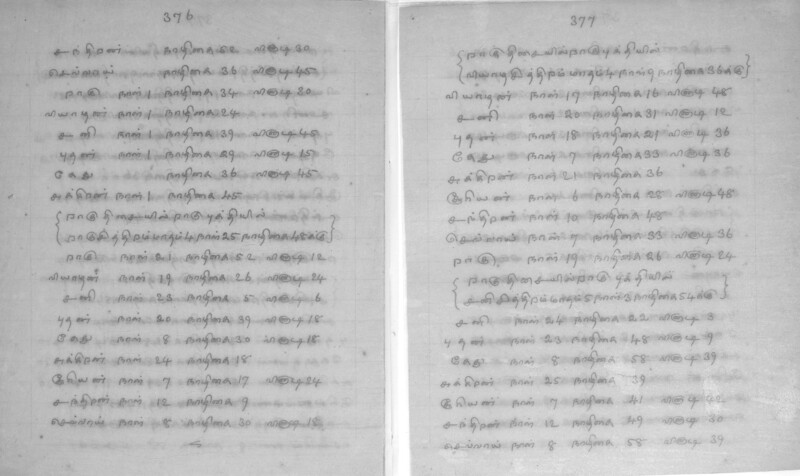 376
சந்திரன் நாழிகை 52 விஙடி 30
செவ்வாய் நாழிகை 36 விஙடி 45
ராகு நாள் 1 நாழிகை 34 விஙடி 30
வியாழன் நாள் 1 நாழிகை 24
சனி நாள் 1 நாழிகை 39 விஙடி 45
புதன் நாள் 1 நாழிகை 29 விஙடி 15
கேது நாழிகை 36 விஙடி 45
சுக்கிரன் நாள் 1 நாழிகை 45
ராகு திசையில் ராகு புத்தியில்
ராகு மாதம் 4 நாள் 25 நாழிகை 48
ராகு நாள் 21 நாழிகை 52 விஙடி 12
வியாழன் நாள் 19 நாழிகை 26 விஙடி 24
சனி நாள் 23 நாழிகை 5 விஙடி 6
புதன் நாள் 20 நாழிகை 39 விஙடி 18
கேது நாள் 8 நாழிகை 30 விஙடி 18
சுக்கிரன் நாள் 24 நாழிகை 18
சூரியன் நாள் 7 நாழிகை 17 விஙடி 24
சந்திரன் நாள் 12 நாழிகை 9
செவ்வாய் நாள் 8 நாழிகை 30 விஙடி 18
377
ராகு திசையில் ராகு புத்தியில்
மாதம் 4 நாள் 9 நாழிகை 36
வியாழன் நாள் 17 நாழிகை 16 விஙடி 48
சனி நாள் 20 நாழிகை 31 விஙடி 12
புதன் நாள் 18 நாழிகை 21 விஙடி 36
கேது நாள் 7 நாழிகை 33 விஙடி 36
சுக்கிரன் நாள் 21 நாழிகை 36
சூரியன் நாள் 6 நாழிகை 28 விஙடி 48
சந்திரன் நாள் 10 நாழிகை 48
செவ்வாய் நாள் 7 நாழிகை 33 விஙடி 36
ராகு நாள் 19 நாழிகை 26 விஙடி 24
ராகு திசையில் ராகு புத்தியில்
மாதம் 5 நாள் 3 நாழிகை 54
சனி நாள் 24 நாழிகை 22 விஙடி 3
புதன் நாள் 23 நாழிகை 48 விஙடி 9
கேது நாள் 8 நாழிகை 58 விஙடி 39
சுக்கிரன் நாள் 25 நாழிகை 39
சூரியன் நாள் 7 நாழிகை 41 விஙடி 42
சந்திரன் நாள் 12 நாழிகை 49 விஙடி 30
செவ்வாய் நாள் 8 நாழிகை 58 விஙடி 39